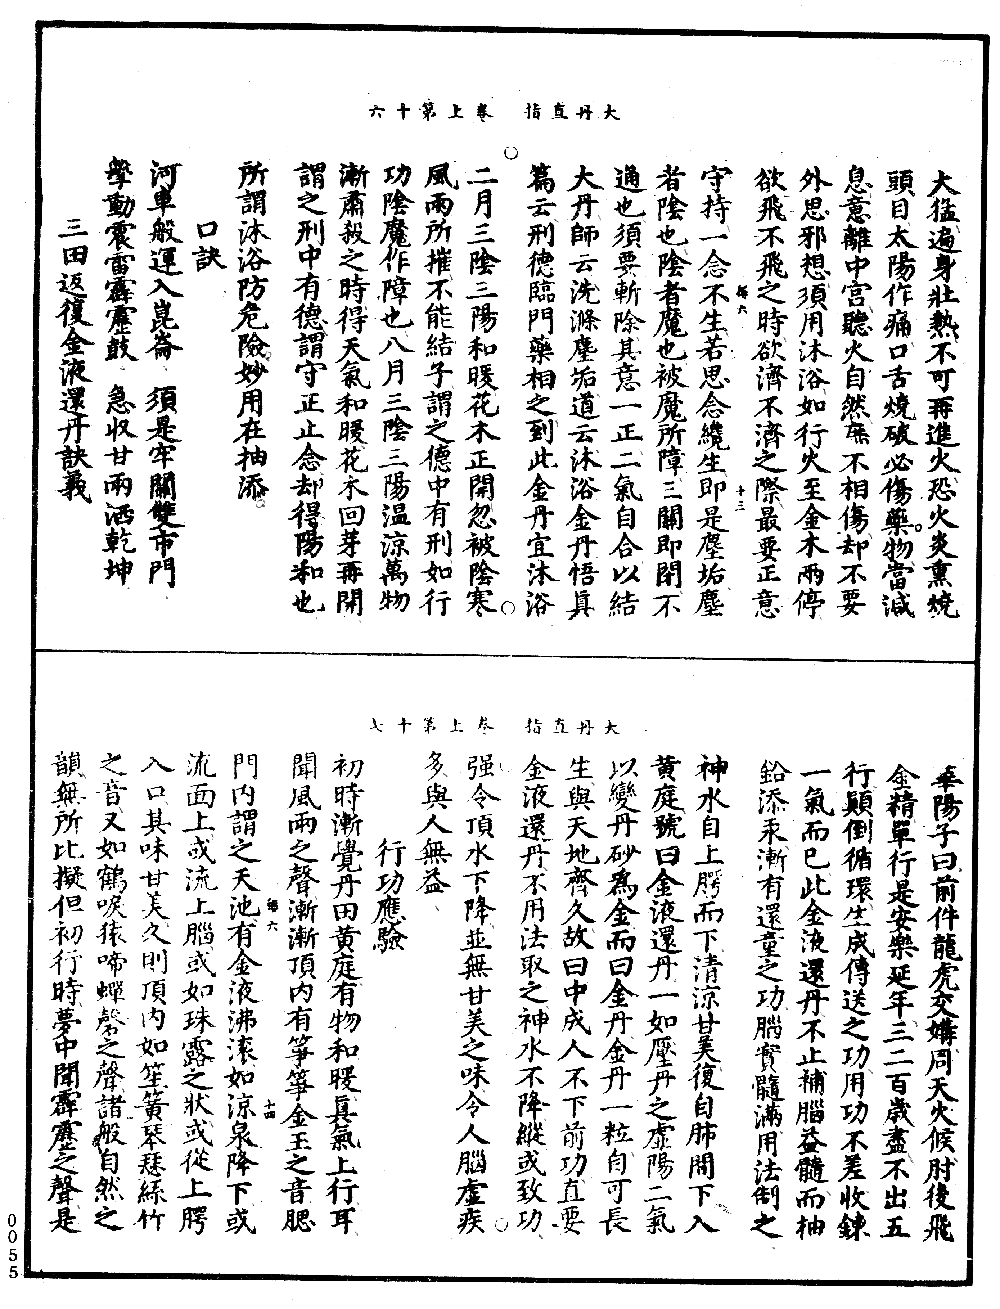 大丹直指　卷上第十六
大猛遍身壯熱不可再進火恐火炎熏燒
頭目太陽作痛口舌燒破必傷藥物當減
息意離中宮聽火自然無不相傷却不要
外思邪想須用沐浴如行火至金木兩停
欲飛不飛之時欲濟不濟之際最要正意
守持一念不生若思念纔生即是塵垢塵
者陰也陰者魔也被魔所障三關即閉不
通也須要斬除其意一正二氣自合以結
大丹師云洗滌塵垢道云沐浴金丹悟真
篇云刑德臨門藥相之到此金丹宜沐浴
二月三陰三陽和暖花木正開忽被陰寒
風雨所摧不能結子謂之德中有刑如行
功陰魔作障也八月三陰三陽溫涼萬物
漸肅殺之時得天氣和暖花木回芽再開
謂之刑中有德謂守正止念却得陽和也
所謂沐浴防危險妙用在抽添
口訣
河車般運入崑崙　須是牢關雙市門
舉動震雷霹靂鼓　急收甘雨洒乾坤
三田返復金液還丹訣義
六
十三
大丹直指　卷上第十七
華陽子曰前件龍虎交媾周天火候肘後飛
金精單行是安樂延年三二百歲盡不出五
行顛倒循環生成傳送之功用功不差收鍊
一氣而巳此金液還丹不止補腦益髓而抽
鉛添汞漸有還童之功腦實髓滿用法制之
神水自上腭而下清涼甘美復自肺關下入
黃庭號曰金液還丹一如壓丹之虛陽二氣
以變丹砂為金而曰金丹金丹一粒自可長
生與天地齊久故曰中成人不下前功直要
金液還丹不用法取之神水不降縱或致功
强令頂水下降並無甘美之味令人腦虛疾
多與人無益
行功應驗
初時漸覺丹田黃庭有物和暖真氣上行耳
聞風雨之聲漸漸頂內有箏箏金玉之音腮
門內謂之天池有金液沸滾如涼泉降下或
流面上或流上腦或如珠露之狀或從上腭
入口其味甘美久則頂內如笙簧琴瑟絲竹
之音又如鶴唳猿啼蟬磬之聲諸般自然之
韻無所比擬但初行時夢中聞霹靂之聲是
六
十四
0055